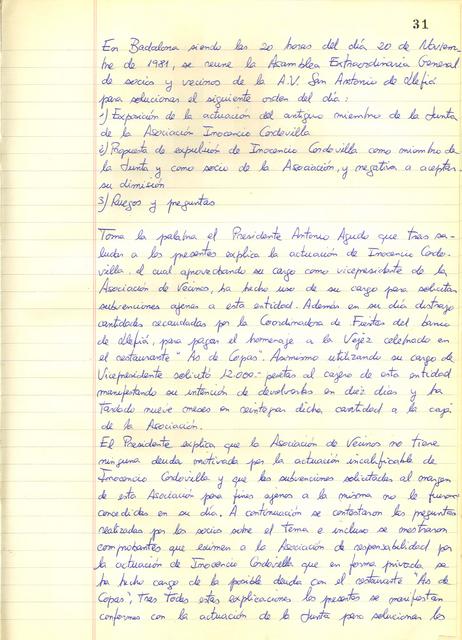 31
En Badalona siendo las 20 horas del día 20 de Noviem-
bre de 1981, se reune la Asamblea Extraordinaria General
de socios y vecinos de la A.V. San Antonio de Llefiá
para solucionar el siguiente orden del día:
1) Exposición de la actuación del antiguo miembro de la Junta
de la Asociación Inocencio Cordovilla
2) Propuesta de expulsión de Inocencio Cordovilla como miembro de
la Junta y como socio de la Asociación, y negativa a aceptar
su dimisión
3) Ruegos y preguntas
Toma la palabra el Presidente Antonio Agudo que tras sa-
ludar a los presentes explica la actuación de Inocencio Cordo-
villa, el cual aprovechando su cargo como vicepresidente de la
Asociación de Vecinos, ha hecho uso de su cargo para solicitar
subvenciones ajenas a esta entidad. Además en su día distrajo
cantidades recaudadas por la Coordinadora de Fiestas del barrio
de Llefiá, para pagar el homenaje a la Vejez celebrado en
el restaurante "As de Copas". Asimismo utilizando su cargo de
Vicepresidente solicitó 12.000- pesetas al cajero de esta entidad
manifestando su intención de devolverlas en diez días y ha
tardado nueve meses en reintegrar dicha cantidad a la caja
de la Asociación.
El Presidente explica que la Asociación de Vecinos no tiene
ninguna deuda motivada por la actuación incalificable de
Inocencio Cordovilla y que las subvenciones solicitadas al margen
de esta Asociación para fines ajenos a la misma no le fueron
concedidas en su día. A continuación se contestaron las preguntas
realizadas por los socios sobre el tema e incluso se mostraron
comprobantes que eximen a la Asociación de responsabilidad por
la actuación de Inocencio Cordovilla que en forma privada se
ha hecho cargo de la posible deuda con el restaurante "As de
Copas". Tras todas estas explicaciones los presentes se manifiestan
conformes con la actuación de la Junta para solucionar los